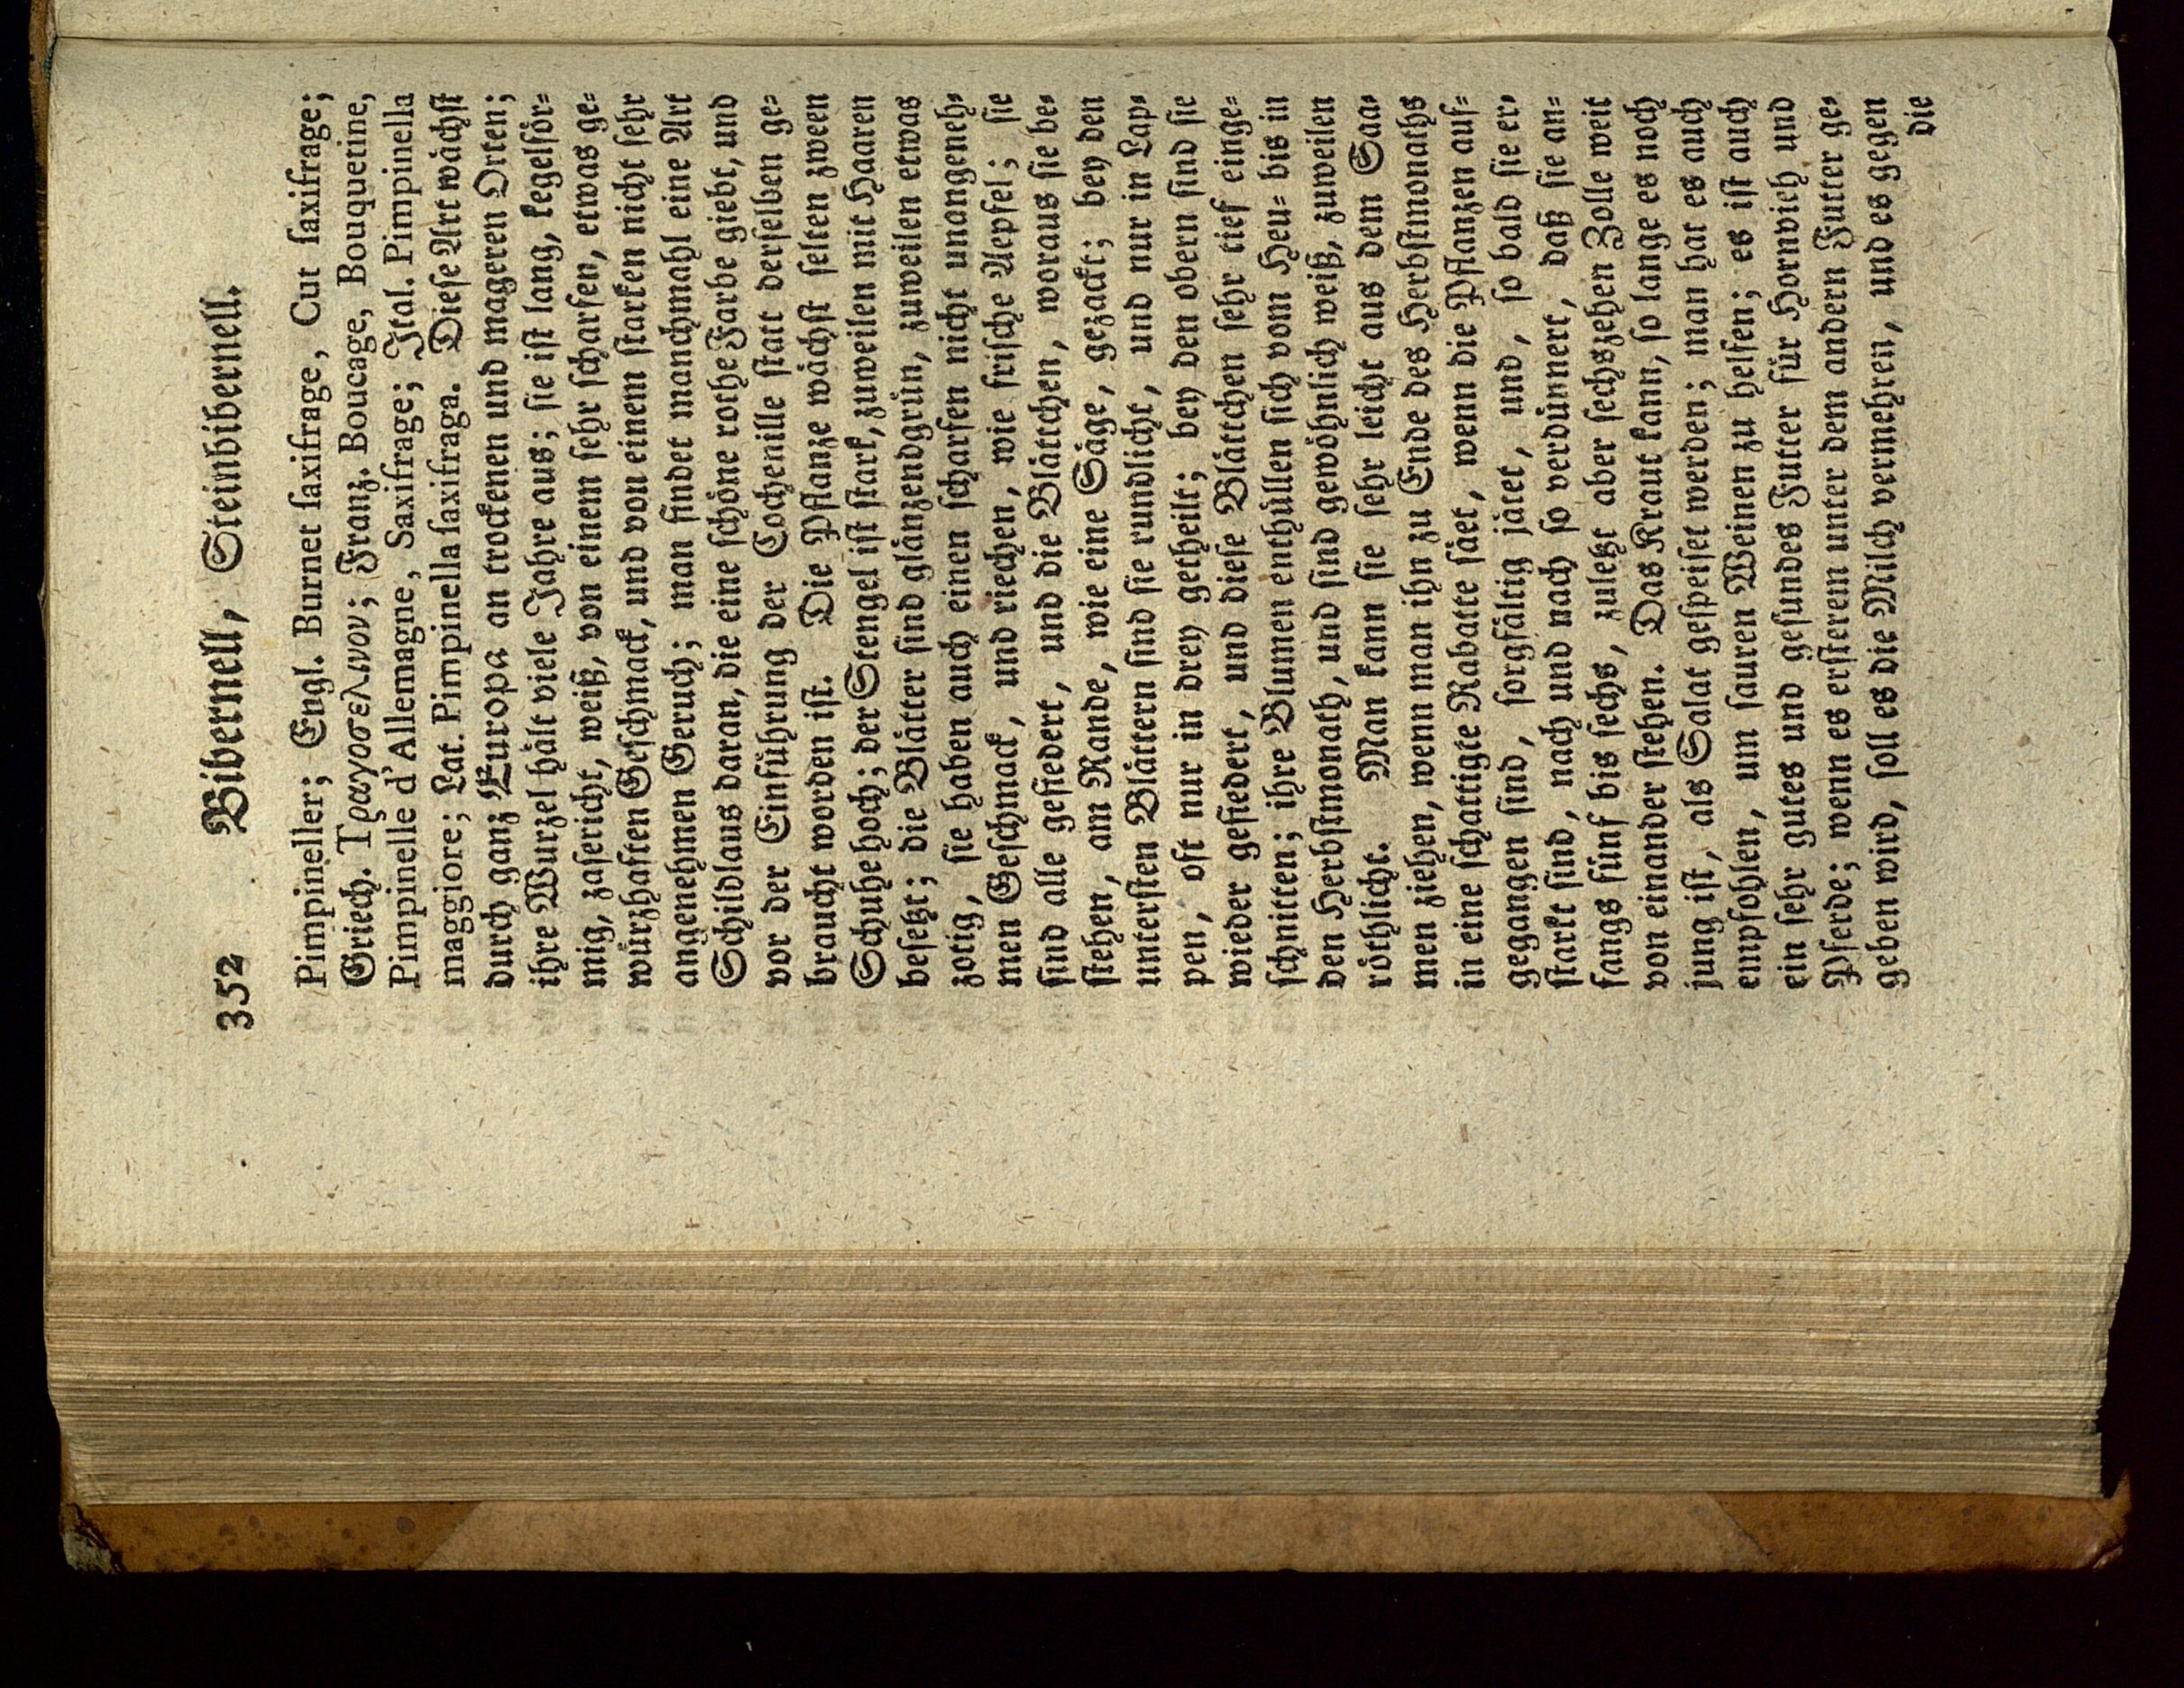 352 Bibernell, Steinbibernell.
Pimpineller; Engl. Burnet ſaxifrage, Cut ſaxifrage;
Griech. Τραγοσελινον; Franz. Boucage, Bouquetine,
Pimpinelle d'Allemagne, Saxifrage; Ital. Pimpinella
maggiore; Lat. Pimpinella ſaxifraga. Dieſe Art wächſt
durch ganz Europa an trockenen und mageren Orten;
ihre Wurzel hält viele Jahre aus; ſie iſt lang, kegelför⸗
mig, zaſericht, weiß, von einem ſehr ſcharfen, etwas ge⸗
würzhaften Geſchmack, und von einem ſtarken nicht ſehr
angenehmen Geruch; man findet manchmahl eine Art
Schildlaus daran, die eine ſchöne rothe Farbe giebt, und
vor der Einführung der Cochenille ſtatt derſelben ge⸗
braucht worden iſt. Die Pflanze wächſt ſelten zween
Schuhe hoch; der Stengel iſt ſtark, zuweilen mit Haaren
beſetzt; die Blätter ſind glänzendgrün, zuweilen etwas
zotig, ſie haben auch einen ſcharfen nicht unangeneh⸗
men Geſchmack, und riechen, wie friſche Aepfel; ſie
ſind alle gefiedert, und die Blättchen, woraus ſie be⸗
ſtehen, am Rande, wie eine Säge, gezackt; bey den
unterſten Blättern ſind ſie rundlicht, und nur in Lap⸗
pen, oft nur in drey getheilt; bey den obern ſind ſie
wieder gefiedert, und dieſe Blättchen ſehr tief einge⸗
ſchnitten; ihre Blumen enthüllen ſich vom Heu⸗ bis in
den Herbſtmonath, und ſind gewöhnlich weiß, zuweilen
röthlicht. Man kann ſie ſehr leicht aus dem Saa⸗
men ziehen, wenn man ihn zu Ende des Herbſtmonaths
in eine ſchattigte Rabatte ſäet, wenn die Pflanzen auf⸗
gegangen ſind, ſorgfältig jätet, und, ſo bald ſie er⸗
ſtarkt ſind, nach und nach ſo verdünnert, daß ſie an⸗
fangs fünf bis ſechs, zuletzt aber ſechszehen Zolle weit
von einander ſtehen. Das Kraut kann, ſo lange es noch
jung iſt, als Salat geſpeiſet werden; man hat es auch
empfohlen, um ſauren Weinen zu helfen; es iſt auch
ein ſehr gutes und geſundes Futter für Hornvieh und
Pferde; wenn es erſterem unter dem andern Futter ge⸗
geben wird, ſoll es die Milch vermehren, und es gegen
die